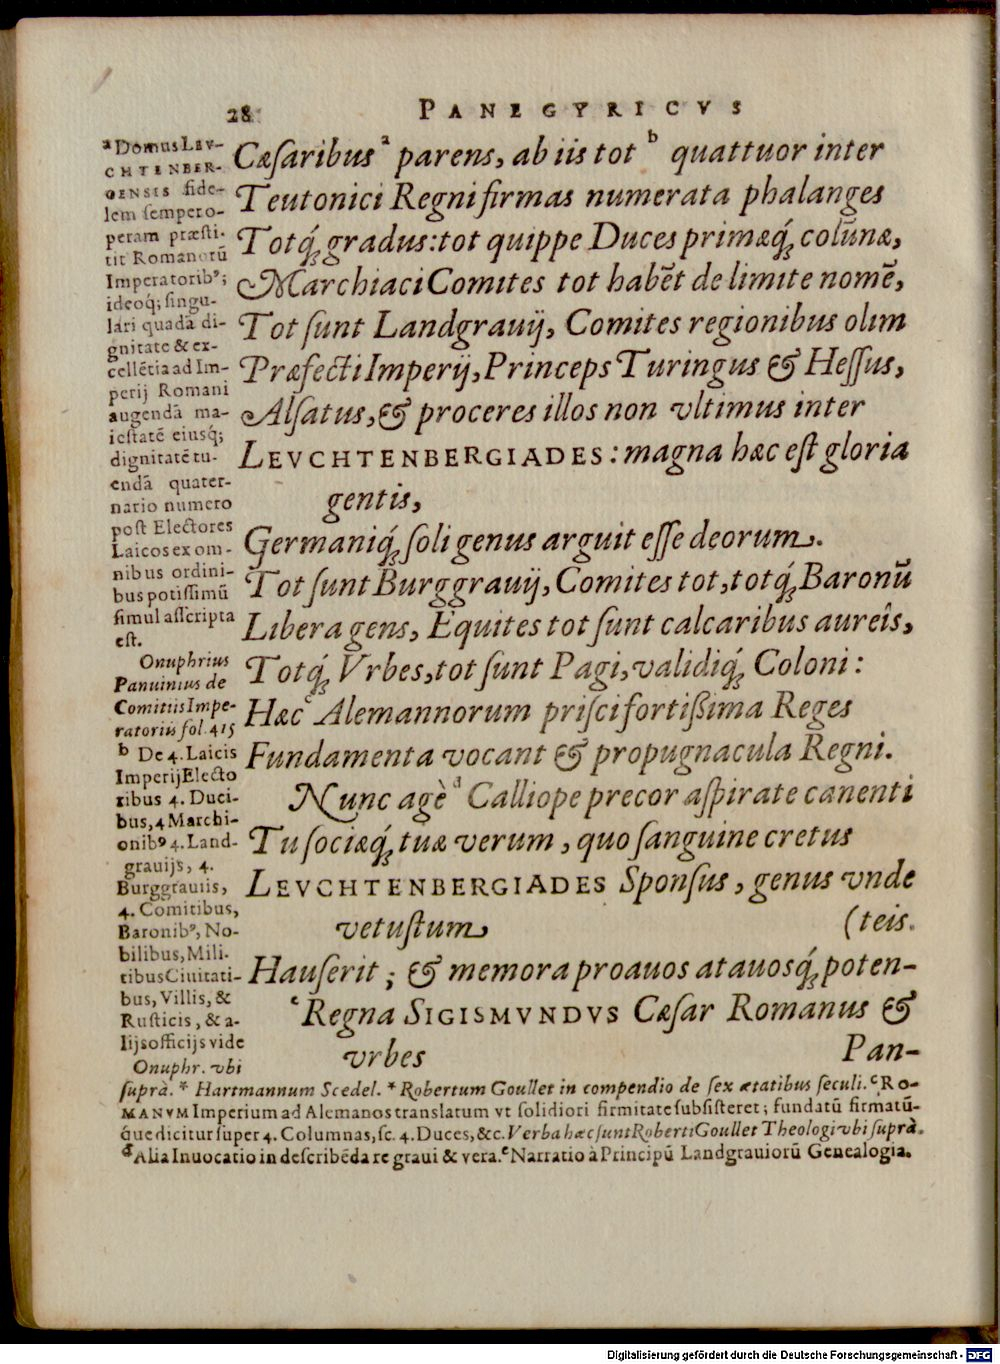 28 PANEGYRICVS
Cæſaribus ª parens, ab iis tot ᵇ quattuor inter
Teutonici Regni firmas numerata phalanges
Totq́ꝫ gradus: tot quippe Duces primæq́ꝫ colũnæ,
Marchiaci Comites tot habẽt de limite nomẽ,
Tot ſunt Landgrauij, Comites regionibus olim
Præfecti Imperij, Princeps Turingus & Heſſus,
Alſatus, & proceres illos non vltimus inter
LEVCHTENBERGIADES: magna hæc eſt gloria
gentis,
Germaniq́ꝫ ſoli genus arguit eſſe deorum.
Tot ſunt Burggrauij, Comites tot, totq́ꝫ Baronũ
Libera gens, Equites tot ſunt calcaribus aureîs,
Totq́ꝫ Vrbes, tot ſunt Pagi, validiq́ꝫ Coloni:
Hæc ᶜ Alemannorum priſci fortißima Reges
Fundamenta vocant & propugnacula Regni.
Nunc agè ᵈ Calliope precor aſpirate canenti
Tu ſociæq́ꝫ tuæ verum, quo ſanguine cretus
LEVCHTENBERGIADES Sponſus, genus vnde
vetuſtum (teis.
Hauſerit; & memora proauos atauosq́ꝫ poten-
ᵉ Regna SIGISMVNDVS Cæſar Romanus &
vrbes Pan-
ª Domus LEV-
CHTENBER-
GENSIS fide-
lem ſemper o-
peram præſti-
tit Romanorũ
Imperatoribꝰ;
ideoq́; ſingu-
lari quadã di-
gnitate & ex-
cellẽtia ad Im-
perij Romani
augendã ma-
ieſtatẽ eiusq́;
dignitatẽ tu-
endã quater-
nario numero
poſt Electores
Laicos ex om-
nibus ordini-
bus potiſſimũ
ſimul aſſcripta
eſt.
Onuphrius
Panuinius de
Comitiis Impe-
ratoriis fol. 415
ᵇ De 4. Laicis
Imperij Electo
ribus 4. Duci-
bus, 4 Marchi-
onibꝰ 4. Land-
grauijs, 4.
Burggrauiis,
4. Comitibus,
Baronibꝰ, No-
bilibus, Mili-
tibus Ciuitati-
bus, Villis, &
Ruſticis, & a-
lijs officijs vide
Onuphr. vbi
ſuprà. * Hartmannum Scedel. * Robertum Goullet in compendio de ſex ætatibus ſeculi. ᶜ RO-
MANVM Imperium ad Alemanos translatum vt ſolidiori firmitate ſubſiſteret; fundatũ firmatũ-
q́ue dicitur ſuper 4. Columnas, ſc. 4. Duces, &c. Verba hæc ſunt Roberti Goullet Theologi vbi ſuprà.
ᵈ Alia Inuocatio in deſcribẽda re graui & vera. ᵉ Narratio à Principũ Landgrauiorũ Genealogia.
Digitalisierung gefördert durch die Deutsche Forschungsgemeinschaft - DFG